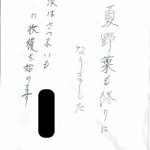 夏野菜も終りに
なりました
次はさつまいも
の収穫を始めます